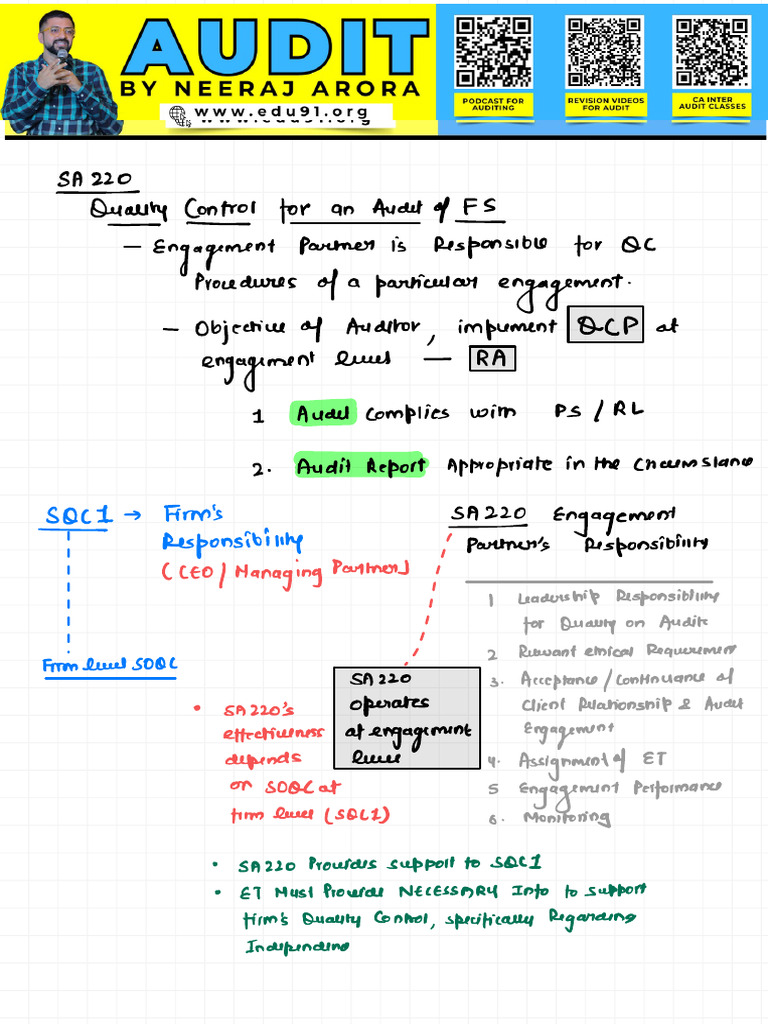 AUDIT
BY NEERAJ ARORA
www.edu91.org
PODCAST FOR
AUDITING
REVISION VIDEOS
FOR AUDIT
CA INTER
AUDIT CLASSES
SA 220
Quality Control for an Audit of FS
— Engagement Partner is Responsible for QC
Procedures of a particular engagement.
— Objective of Auditor, implement QCP at
engagement level — RA
1 Audit Complies with PS / RL
2. Audit Report Appropriate in the Circumstance
SQC1 → Firm's
Responsibility
(CEO / Managing Partner)
Firm level SOQC
SA 220 Engagement
Partner's Responsibility
1 Leadership Responsibility
for Quality on Audits
2 Relevant ethical Requirement
3. Acceptance / Continuance of
Client Relationship & Audit
Engagement
4. Assignment of ET
5 Engagement Performance
6. Monitoring
SA 220
operates
at engagement
level
• SA 220's
effectiveness
depends
on SOQC at
firm level (SQC1)
• SA 220 Provides support to SQC1
• ET Must Provide NECESSARY Info to support
firm's Quality Control, specifically Regarding
Independence